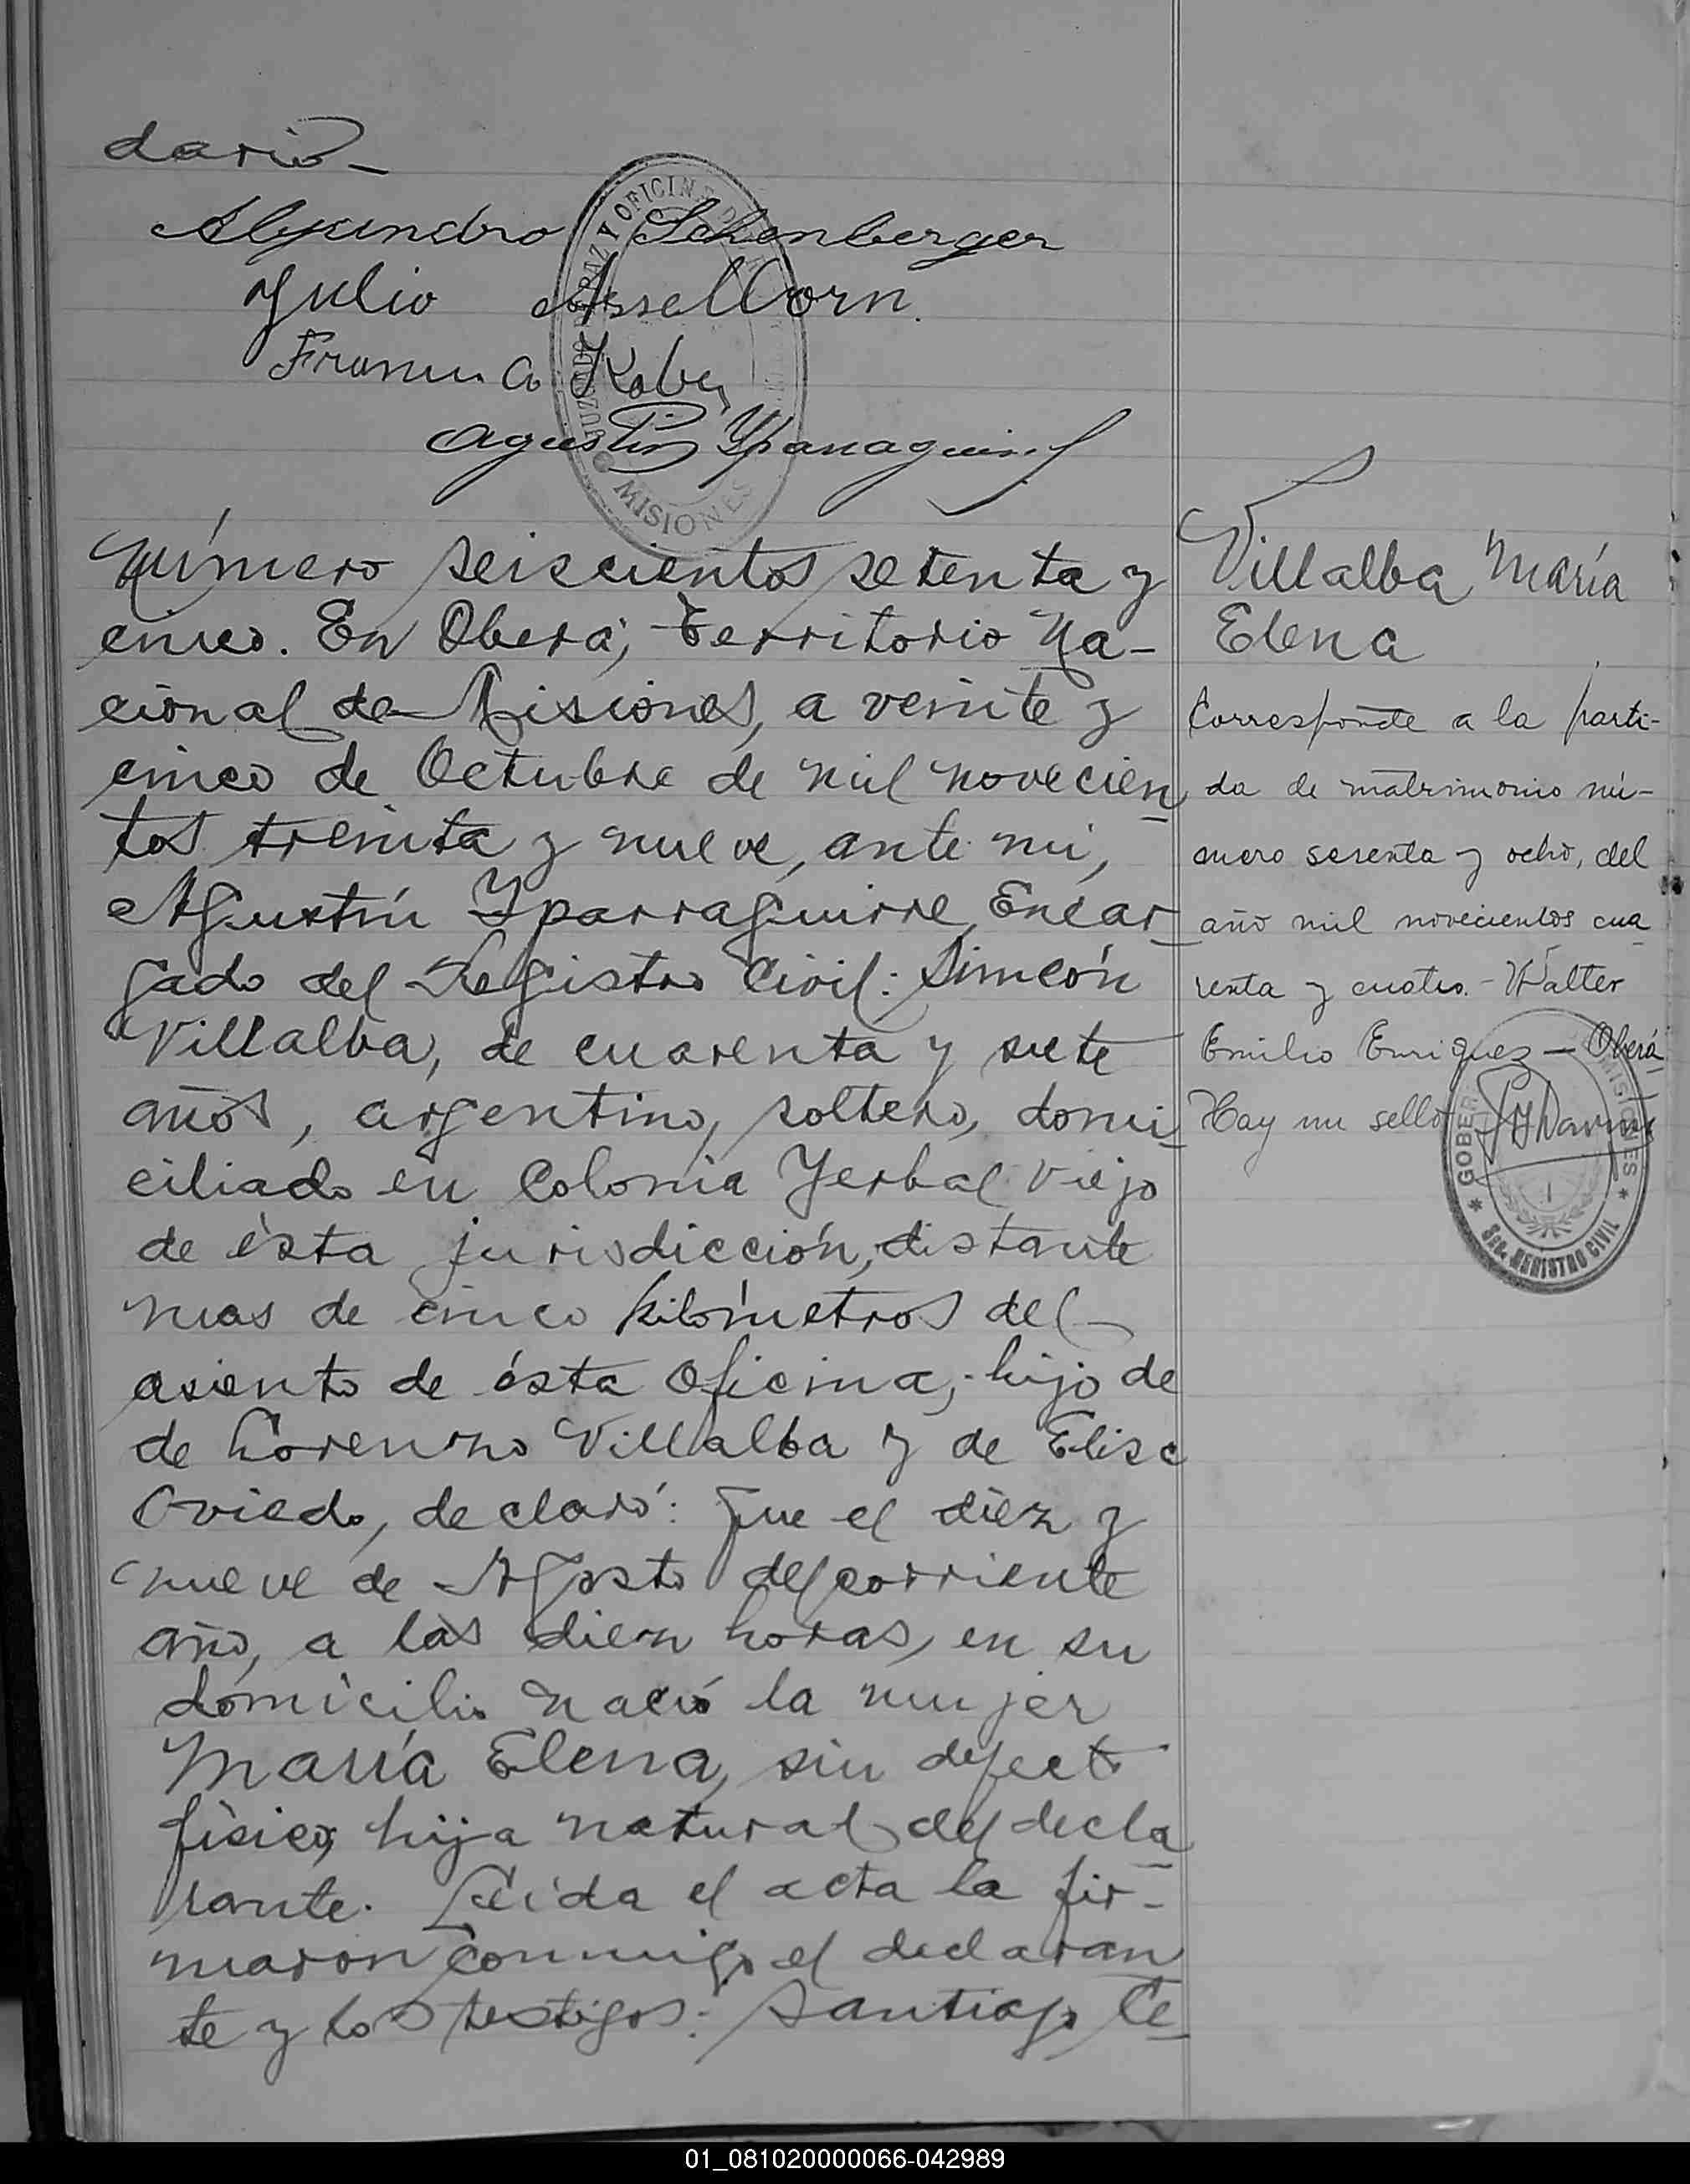 dario-
Alejandro Schonberger
Julio Assellborn
Koby
Agustin Yparraguirre
JUZGADO DE PAZ Y OFICINA D
MISIONES
Número seiscientos setenta y
cinco. En Oberá, territorio Na-
cional de Misiones, a veinte y
cinco de Octubre de mil novecien
tos treinta y nueve, ante mi,
Agustín Yparraguirre, Encar
gado del Registro Civil: Simeón
Villalba, de cuarenta y siete
años, argentino, soltero, domi
ciliado en Colonia Yerbal Viejo
de ésta jurisdicción, distante
mas de cinco kilómetros del
asiento de ésta oficina, hijo de
de Lorenzo Villalba y de Elisa
Oviedo, declaró: que el diez y
nueve de Agosto del corriente
año, a las diez horas, en su
domicilio nació la mujer
María Elena, sin defecto
físico, hija natural del decla
rante. Leída el acta la fir-
maron conmigo el declaran
te y los testigos: Santiago Ce
Villalba María
Elena
Corresponde a la parti-
da de matrimonio nú-
mero sesenta y ocho, del
año mil novecientos cua
renta y cuatro. - Walter
Emilio Enriquez - Oberá
Hay un sello
GOBER
MISIONES
SEC. REGISTRO CIVIL
01_081020000066-042989